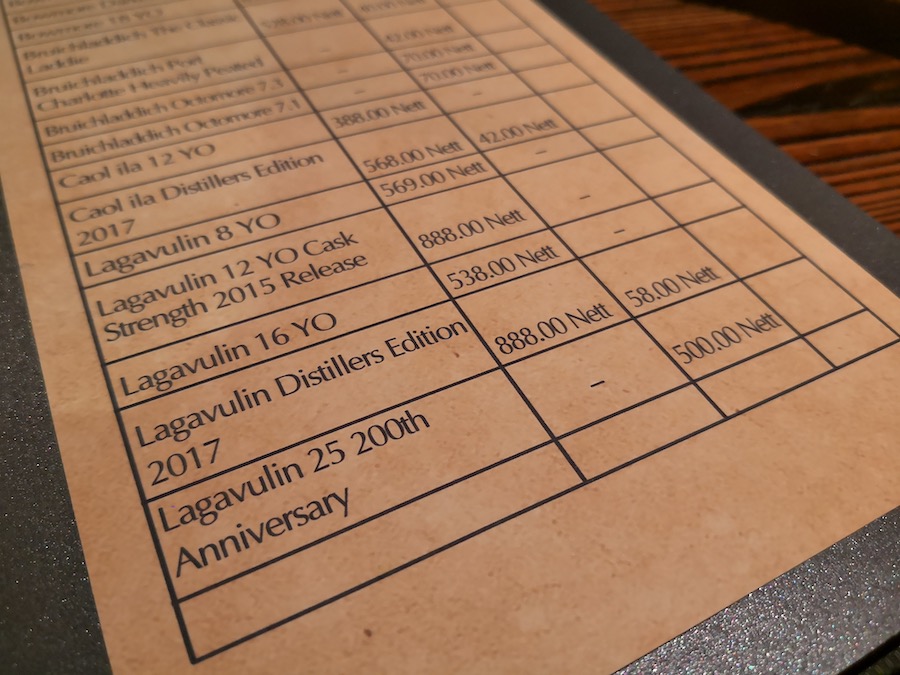 Bowmore 18 YO
Bruichladdich The Classic
Laddie
42.00 Nett
Bruichladdich Port
Charlotte Heavily Peated
– 70.00 Nett
Bruichladdich Octomore 7.3
– 70.00 Nett
Bruichladdich Octomore 7.1
– –
Caol ila 12 YO
388.00 Nett
42.00 Nett
Caol ila Distillers Edition
2017
568.00 Nett –
Lagavulin 8 YO
569.00 Nett
–
Lagavulin 12 YO Cask
Strength 2015 Release
888.00 Nett –
Lagavulin 16 YO
538.00 Nett 58.00 Nett
Lagavulin Distillers Edition
2017
888.00 Nett 500.00 Nett
Lagavulin 25 200th
Anniversary
–